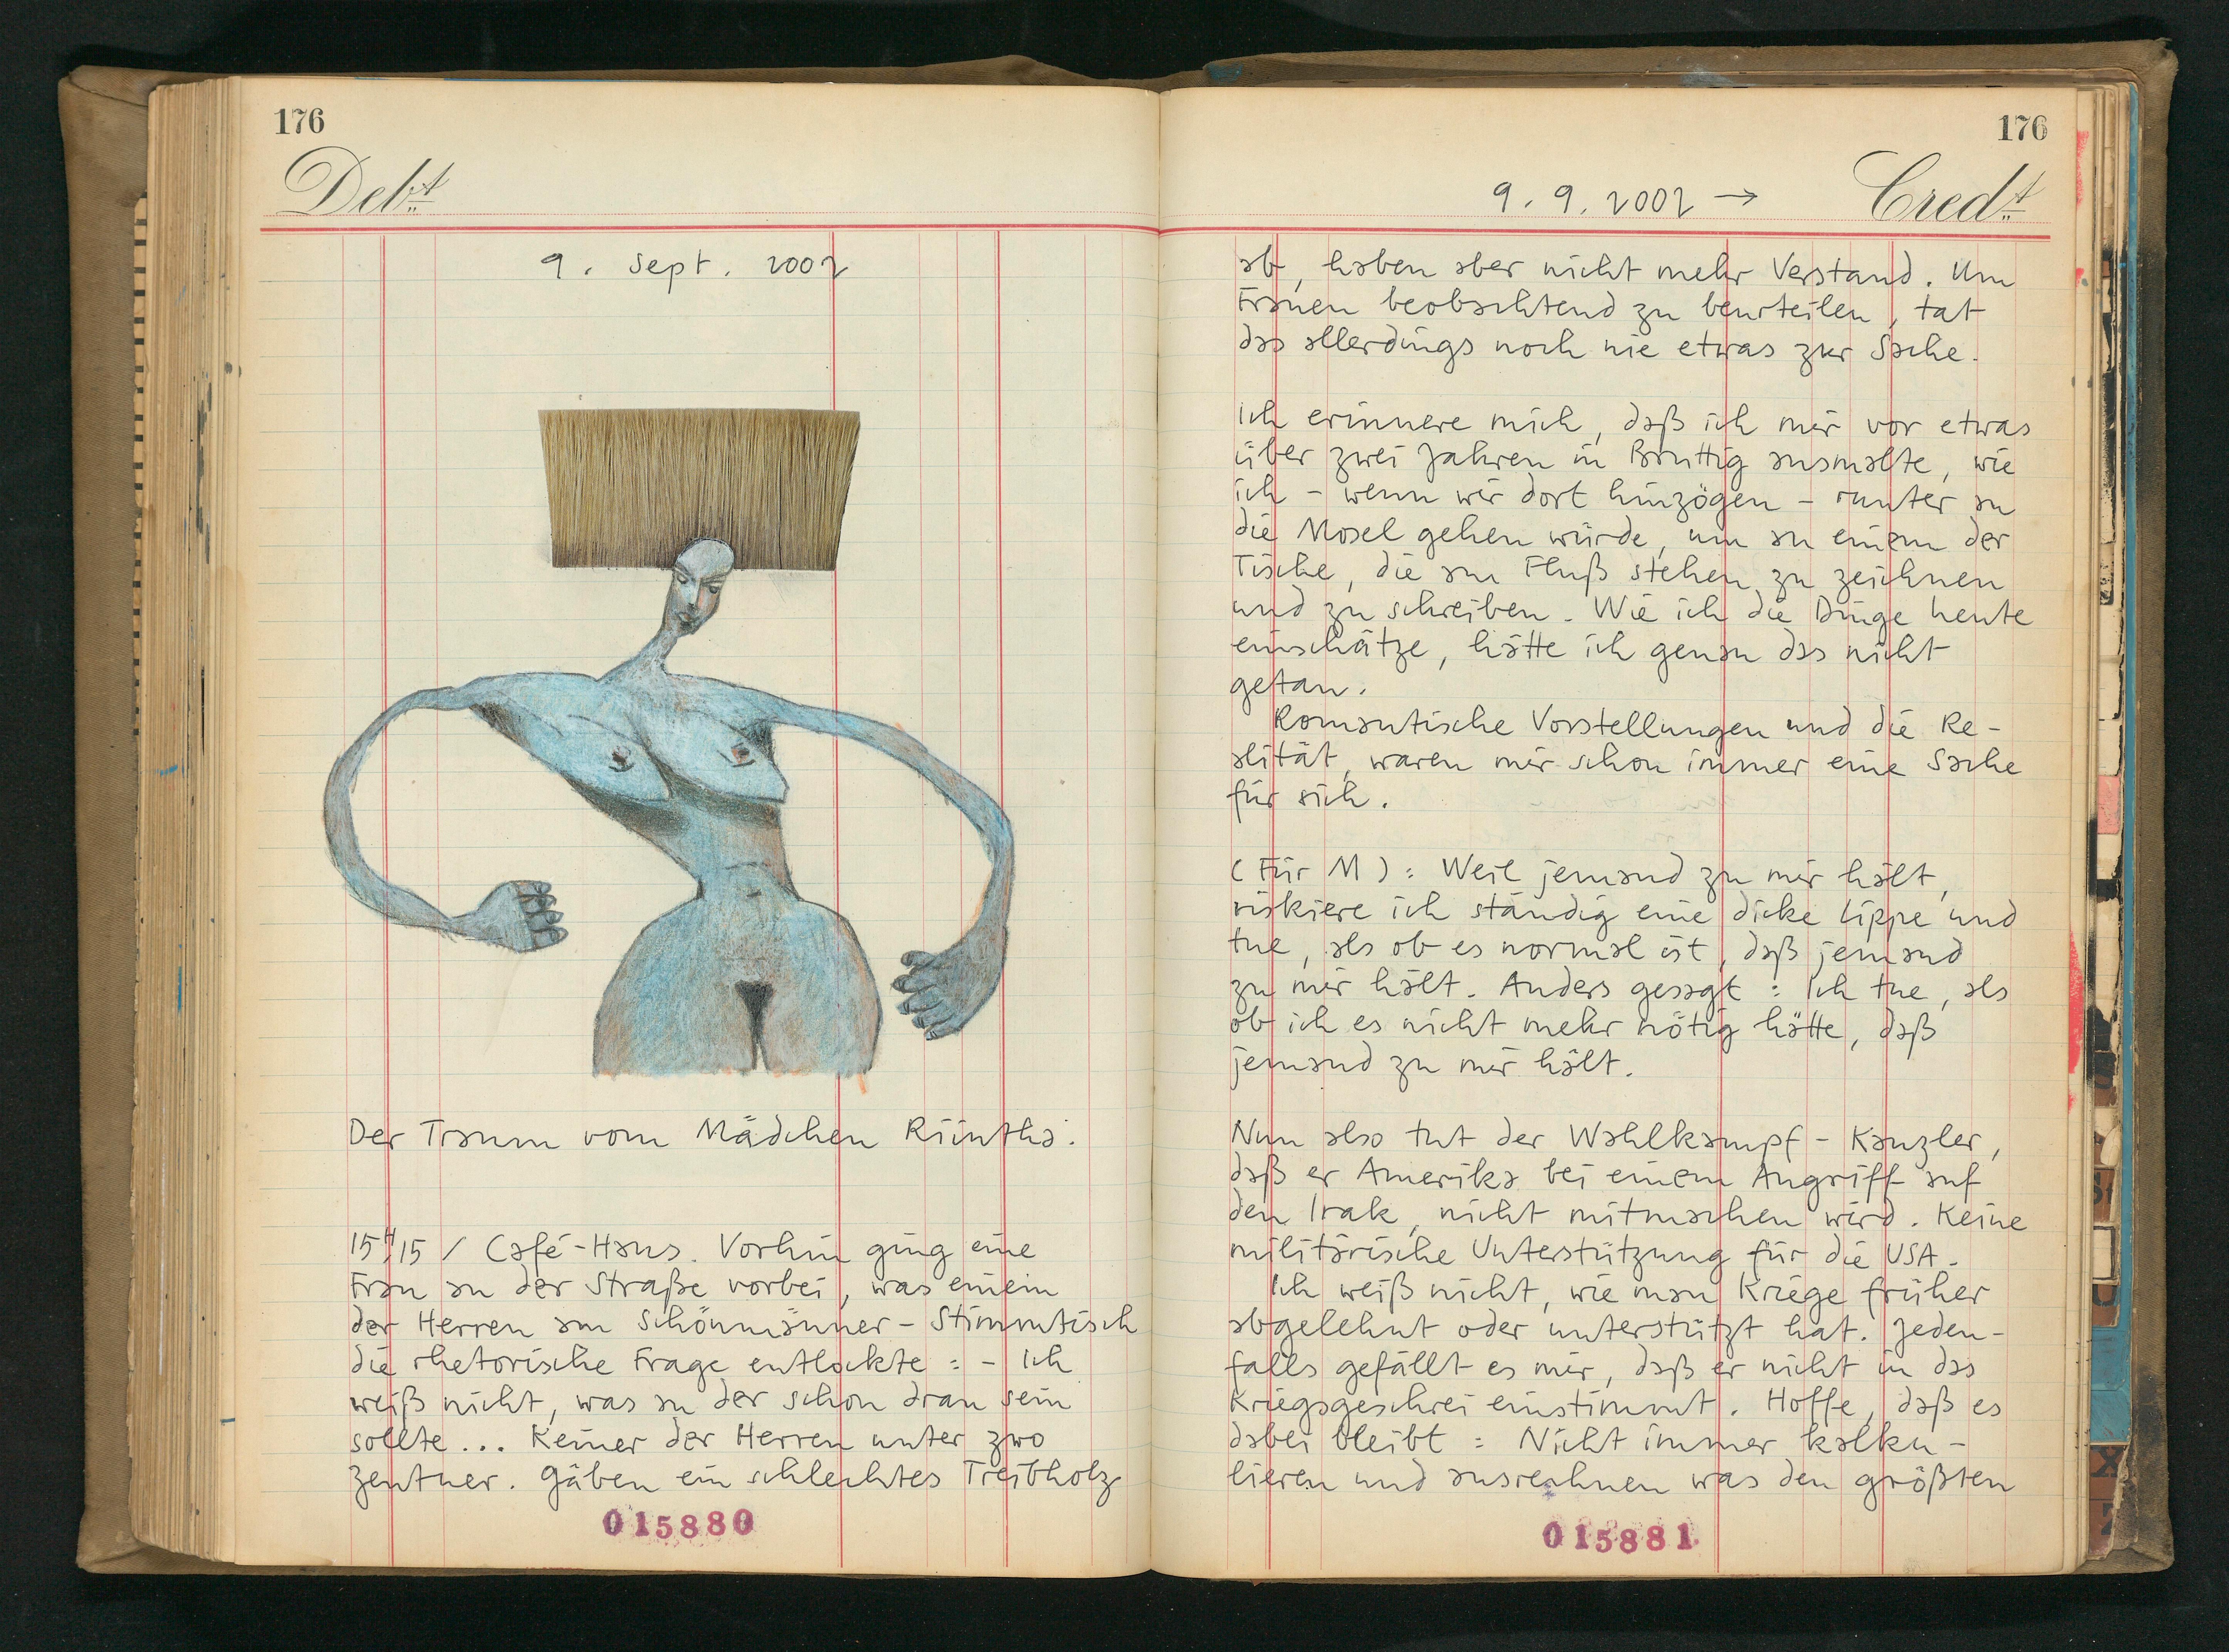 176
Debt
9. Sept. 2002
Der Traum vom Mädchen Rüintha.
15H15 / Café-Haus. Vorhin ging eine
Frau an der Straße vorbei, was einem
der Herren am Schönmänner-Stimmtisch
die rhetorische Frage entlockte: - Ich
weiß nicht, was an der schon dran sein
sollte... Keiner der Herren unter zwo
Zentner. Gäben ein schlechtes Treibholz
015880
176
9.9.2002 → Credt
ab, haben aber nicht mehr Verstand. Um
Frauen beobachtend zu beurteilen, tat
das allerdings noch nie etwas zur Sache.
Ich erinnere mich, daß ich mir vor etwas
über zwei Jahren in Bruttig ausmalte, wie
ich - wenn wir dort hinzögen - runter an
die Mosel gehen würde, um an einem der
Tische, die am Fluß stehen, zu zeichnen
und zu schreiben. Wie ich die Dinge heute
einschätze, hätte ich genau das nicht
getan.
Romantische Vorstellungen und die Re-
alität, waren mir schon immer eine Sache
für sich.
(Für M): Weil jemand zu mir hält,
riskiere ich ständig eine dicke Lippe und
tue, als ob es normal ist, daß jemand
zu mir hält. Anders gesagt: Ich tue, als
ob ich es nicht mehr nötig hätte, daß
jemand zu mir hält.
Nun also tut der Wahlkampf-Kanzler,
daß er Amerika bei einem Angriff auf
den Irak, nicht mitmachen wird. Keine
militärische Unterstützung für die USA.
Ich weiß nicht, wie man Kriege früher
abgelehnt oder unterstützt hat. Jeden-
falls gefällt es mir, daß er nicht in das
Kriegsgeschrei einstimmt. Hoffe, daß es
dabei bleibt: Nicht immer kalku-
lieren und ausrechnen was den größten
015881